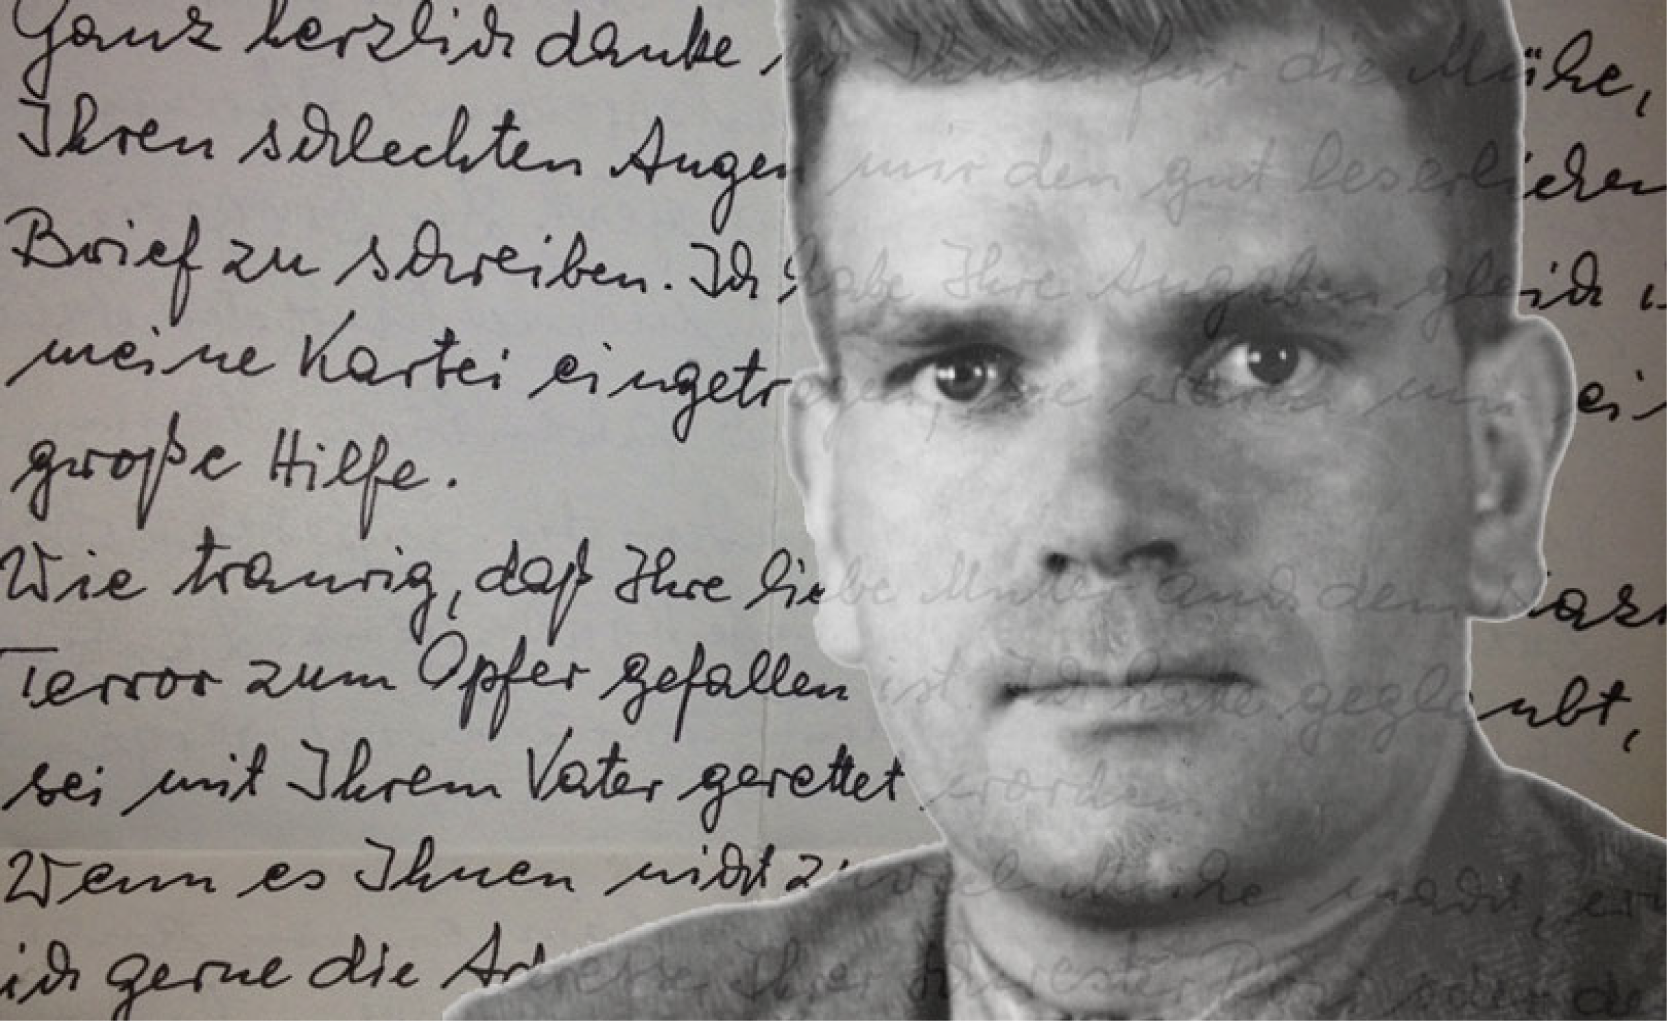 Ganz herzlich danke ich Ihnen für die Mühe,
Ihren schlechten Augen mir den gut leserlichen
Brief zu schreiben. Ich habe Ihre Angaben gleich i
meine Kartei eingetragen, sie werden mir ei
große Hilfe.
Wie traurig, daß Ihre liebe Mutter auch dem Nazi
Terror zum Opfer gefallen ist. Ich hatte geglaubt,
sei mit Ihrem Vater gerettet worden.
Wenn es Ihnen nicht zuviel Mühe macht, er
ich gerne die Adresse Ihrer Schwester oder de